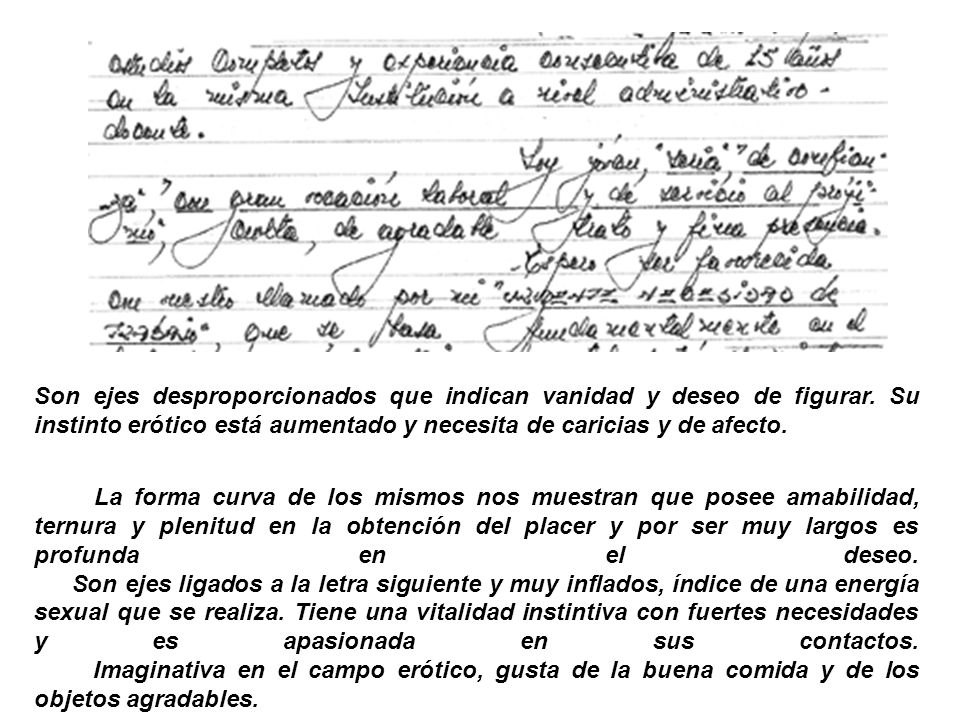 estudios completos y experiencia consecutiva de 15 años
en la misma Institución a nivel administrativo-
docente.
Soy joven, "seria", "de confian-
za", con gran vocación laboral y de servicio al próji-
mo", culta, de agradable trato y fina presencia.
-Espero ser favorecida
con vuestro llamado por mi
que se basa fundamentalmente en el
Son ejes desproporcionados que indican vanidad y deseo de figurar. Su
instinto erótico está aumentado y necesita de caricias y de afecto.
La forma curva de los mismos nos muestran que posee amabilidad,
ternura y plenitud en la obtención del placer y por ser muy largos es
profunda en el deseo.
Son ejes ligados a la letra siguiente y muy inflados, índice de una energía
sexual que se realiza. Tiene una vitalidad instintiva con fuertes necesidades
y es apasionada en sus contactos.
Imaginativa en el campo erótico, gusta de la buena comida y de los
objetos agradables.